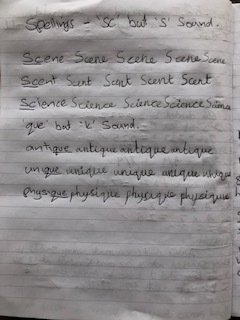 Spellings - 'Sc' but 's' Sound.
Scene Scene Scene Scene Scene
Scent Scent Scent Scent Scent
Science Science Science Science Science
que' but 'k' Sound.
antique antique antique antique
unique unique unique unique unique
physique physique physique physique